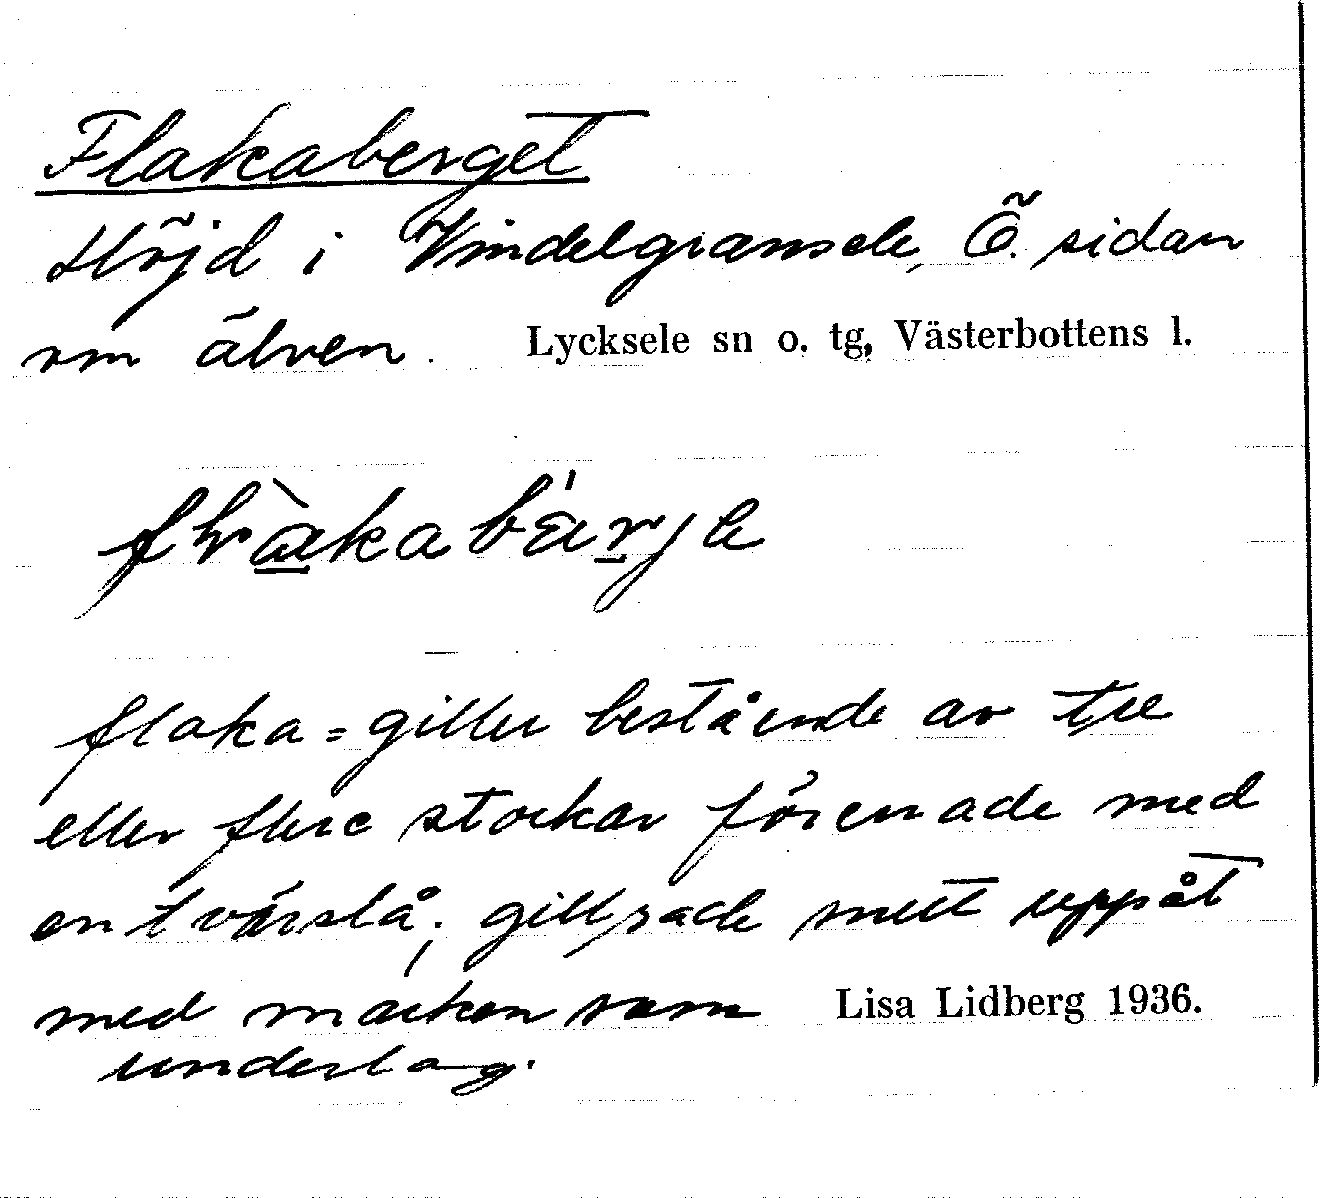 Flakaberget
Höjd i Vindelgransele, Ö. sidan
om älven. Lycksele sn o. tg, Västerbottens l.
flaka = giller bestående av tre
eller flere stockar förenade med
en tvärslå; gillrade mitt uppåt
med marken som Lisa Lidberg 1936.
underlag.